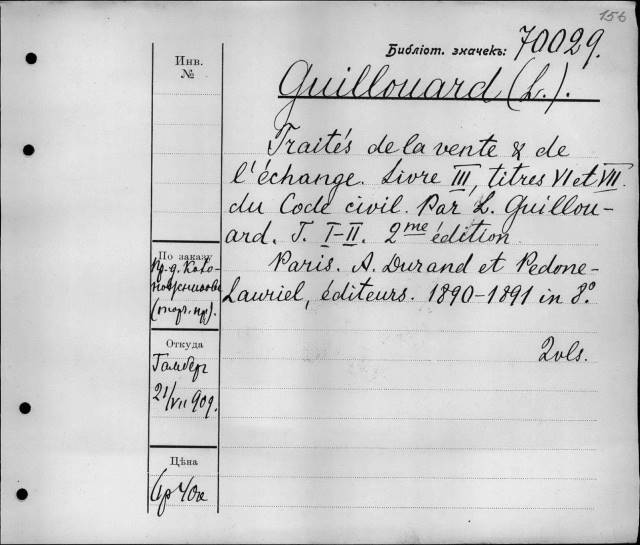 156
Библіот. значекъ: 70029.
Инв.
№
Guillouard (L.).
Traités de la vente & de
l'échange. Livre III, titres VI et VII.
du Code civil. Par L. Guillou-
ard. T. I-II. 2me édition
Paris. A. Durand et Pedone-
Lauriel, éditeurs. 1890-1891 in 8°
2 vls.
По заказу
(торг. пр.).
Откуда
Гамберг
21/VII 909.
Цѣна